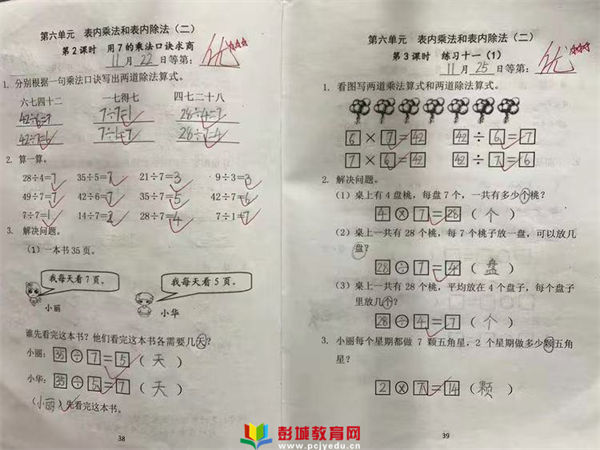 第六单元 表内乘法和表内除法（二）
第2课时 用7的乘法口诀求商
11月22日等第： 优
1. 分别根据一句乘法口诀写出两道除法算式。
六七四十二 一七得七 四七二十八
42÷6=7 7÷7=1 28÷4=7
42÷7=6 7÷1=7 28÷7=4
2. 算一算。
28÷4=7 35÷5=7 21÷7=3 9÷3=3
49÷7=7 42÷6=7 35÷7=5 42÷7=6
7÷7=1 14÷7=2 28÷7=4 7÷1=7
3. 解决问题。
（1）一本书35页。
我每天看7页。 我每天看5页。
小丽 小华
谁先看完这本书？他们看完这本书各需要几天？
小丽：35÷7=5（天）
小华：35÷5=7（天）
（小丽）先看完这本书。
38
第六单元 表内乘法和表内除法（二）
第3课时 练习十一（1）
11月25日等第： 优
1. 看图写两道乘法算式和两道除法算式。
6×7=42 42÷6=7
7×6=42 42÷7=6
2. 解决问题。
（1）桌上有4盘桃，每盘7个，一共有多少个桃？
4×7=28（个）
（2）桌上一共有28个桃，每7个桃子放一盘，可以放几
盘？
28÷7=4（盘）
（3）桌上一共有28个桃，平均放在4个盘子，每个盘子
里放几个？
28÷4=7（个）
3. 小丽每个星期都做7颗五角星，2个星期做多少颗五角
星？
2×7=14（颗）
39
彭城教育网
www.pcjyedu.cn